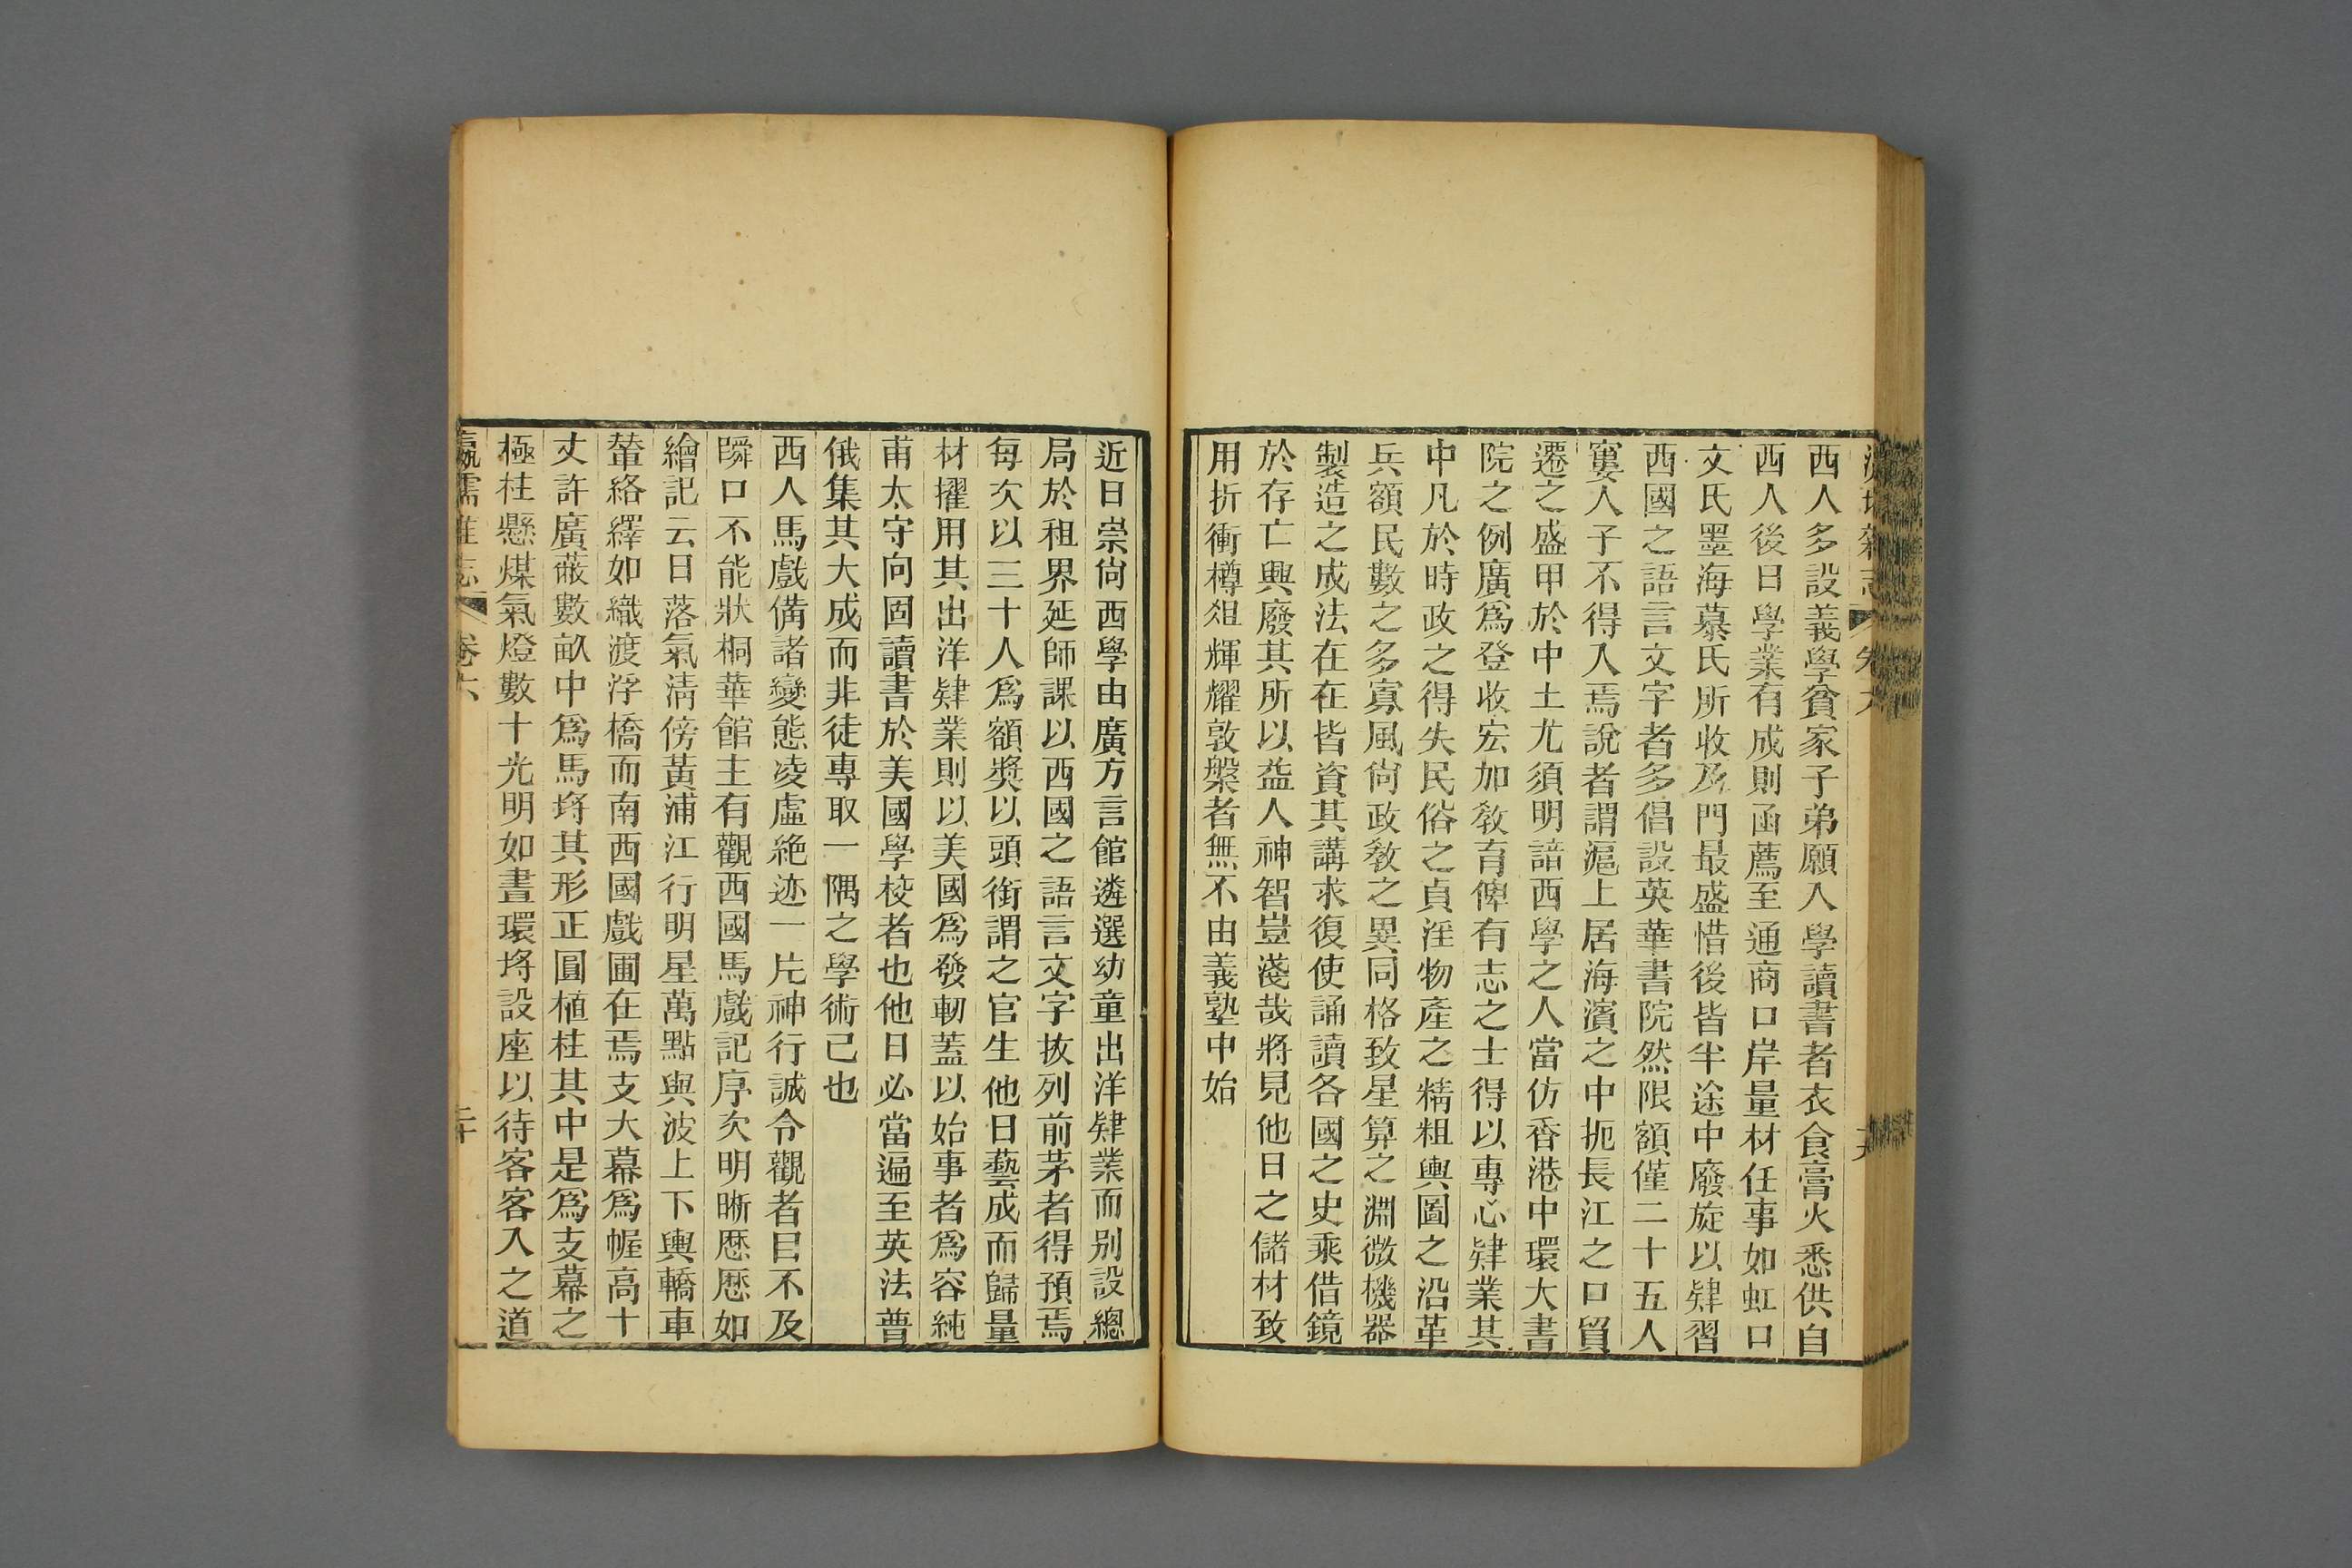 西人多設義學貧家子弟願入學讀書者衣食膏火悉供自
西人後日學業有成則函薦至通商口岸量材任事如虹口
文氏墨海慕氏所收及門最盛惜後皆半途中廢旋以肄習
西國之語言文字者多倡設英華書院然限額僅二十五人
窶人子不得入焉說者謂滬上居海濱之中扼長江之口貿
遷之盛甲於中土尤須明諳西學之人當仿香港中環大書
院之例廣爲登收宏加敎育俾有志之士得以專心肄業其
中凡於時政之得失民俗之貞淫物產之精粗輿圖之沿革
兵額民數之多寡風尙政敎之異同格致星算之淵微機器
製造之成法在在皆資其講求復使誦讀各國之史乘借鏡
於存亡興廢其所以益人神智豈淺哉將見他日之儲材致
用折衝樽俎輝耀敦槃者無不由義塾中始
近日崇尙西學由廣方言館遴選幼童出洋肄業而別設總
局於租界延師課以西國之語言文字拔列前茅者得預焉
每次以三十人爲額獎以頭銜謂之官生他日藝成而歸量
材擢用其出洋肄業則以美國爲發軔蓋以始事者爲容純
甫太守向固讀書於美國學校者也他日必當遍至英法普
俄集其大成而非徒專取一隅之學術已也
西人馬戲備諸變態凌虛絶迹一片神行誠令觀者目不及
瞬口不能狀桐華館主有觀西國馬戲記序次明晰歷歷如
繪記云日落氣淸傍黃浦江行明星萬點與波上下輿轎車
輦絡繹如織渡浮橋而南西國戲圃在焉支大幕爲幄高十
丈許廣蔽數畝中爲馬埒其形正圓植柱其中是爲支幕之
極柱懸煤氣燈數十光明如晝環埒設座以待客客入之道
瀛壖雜志 卷六 二十